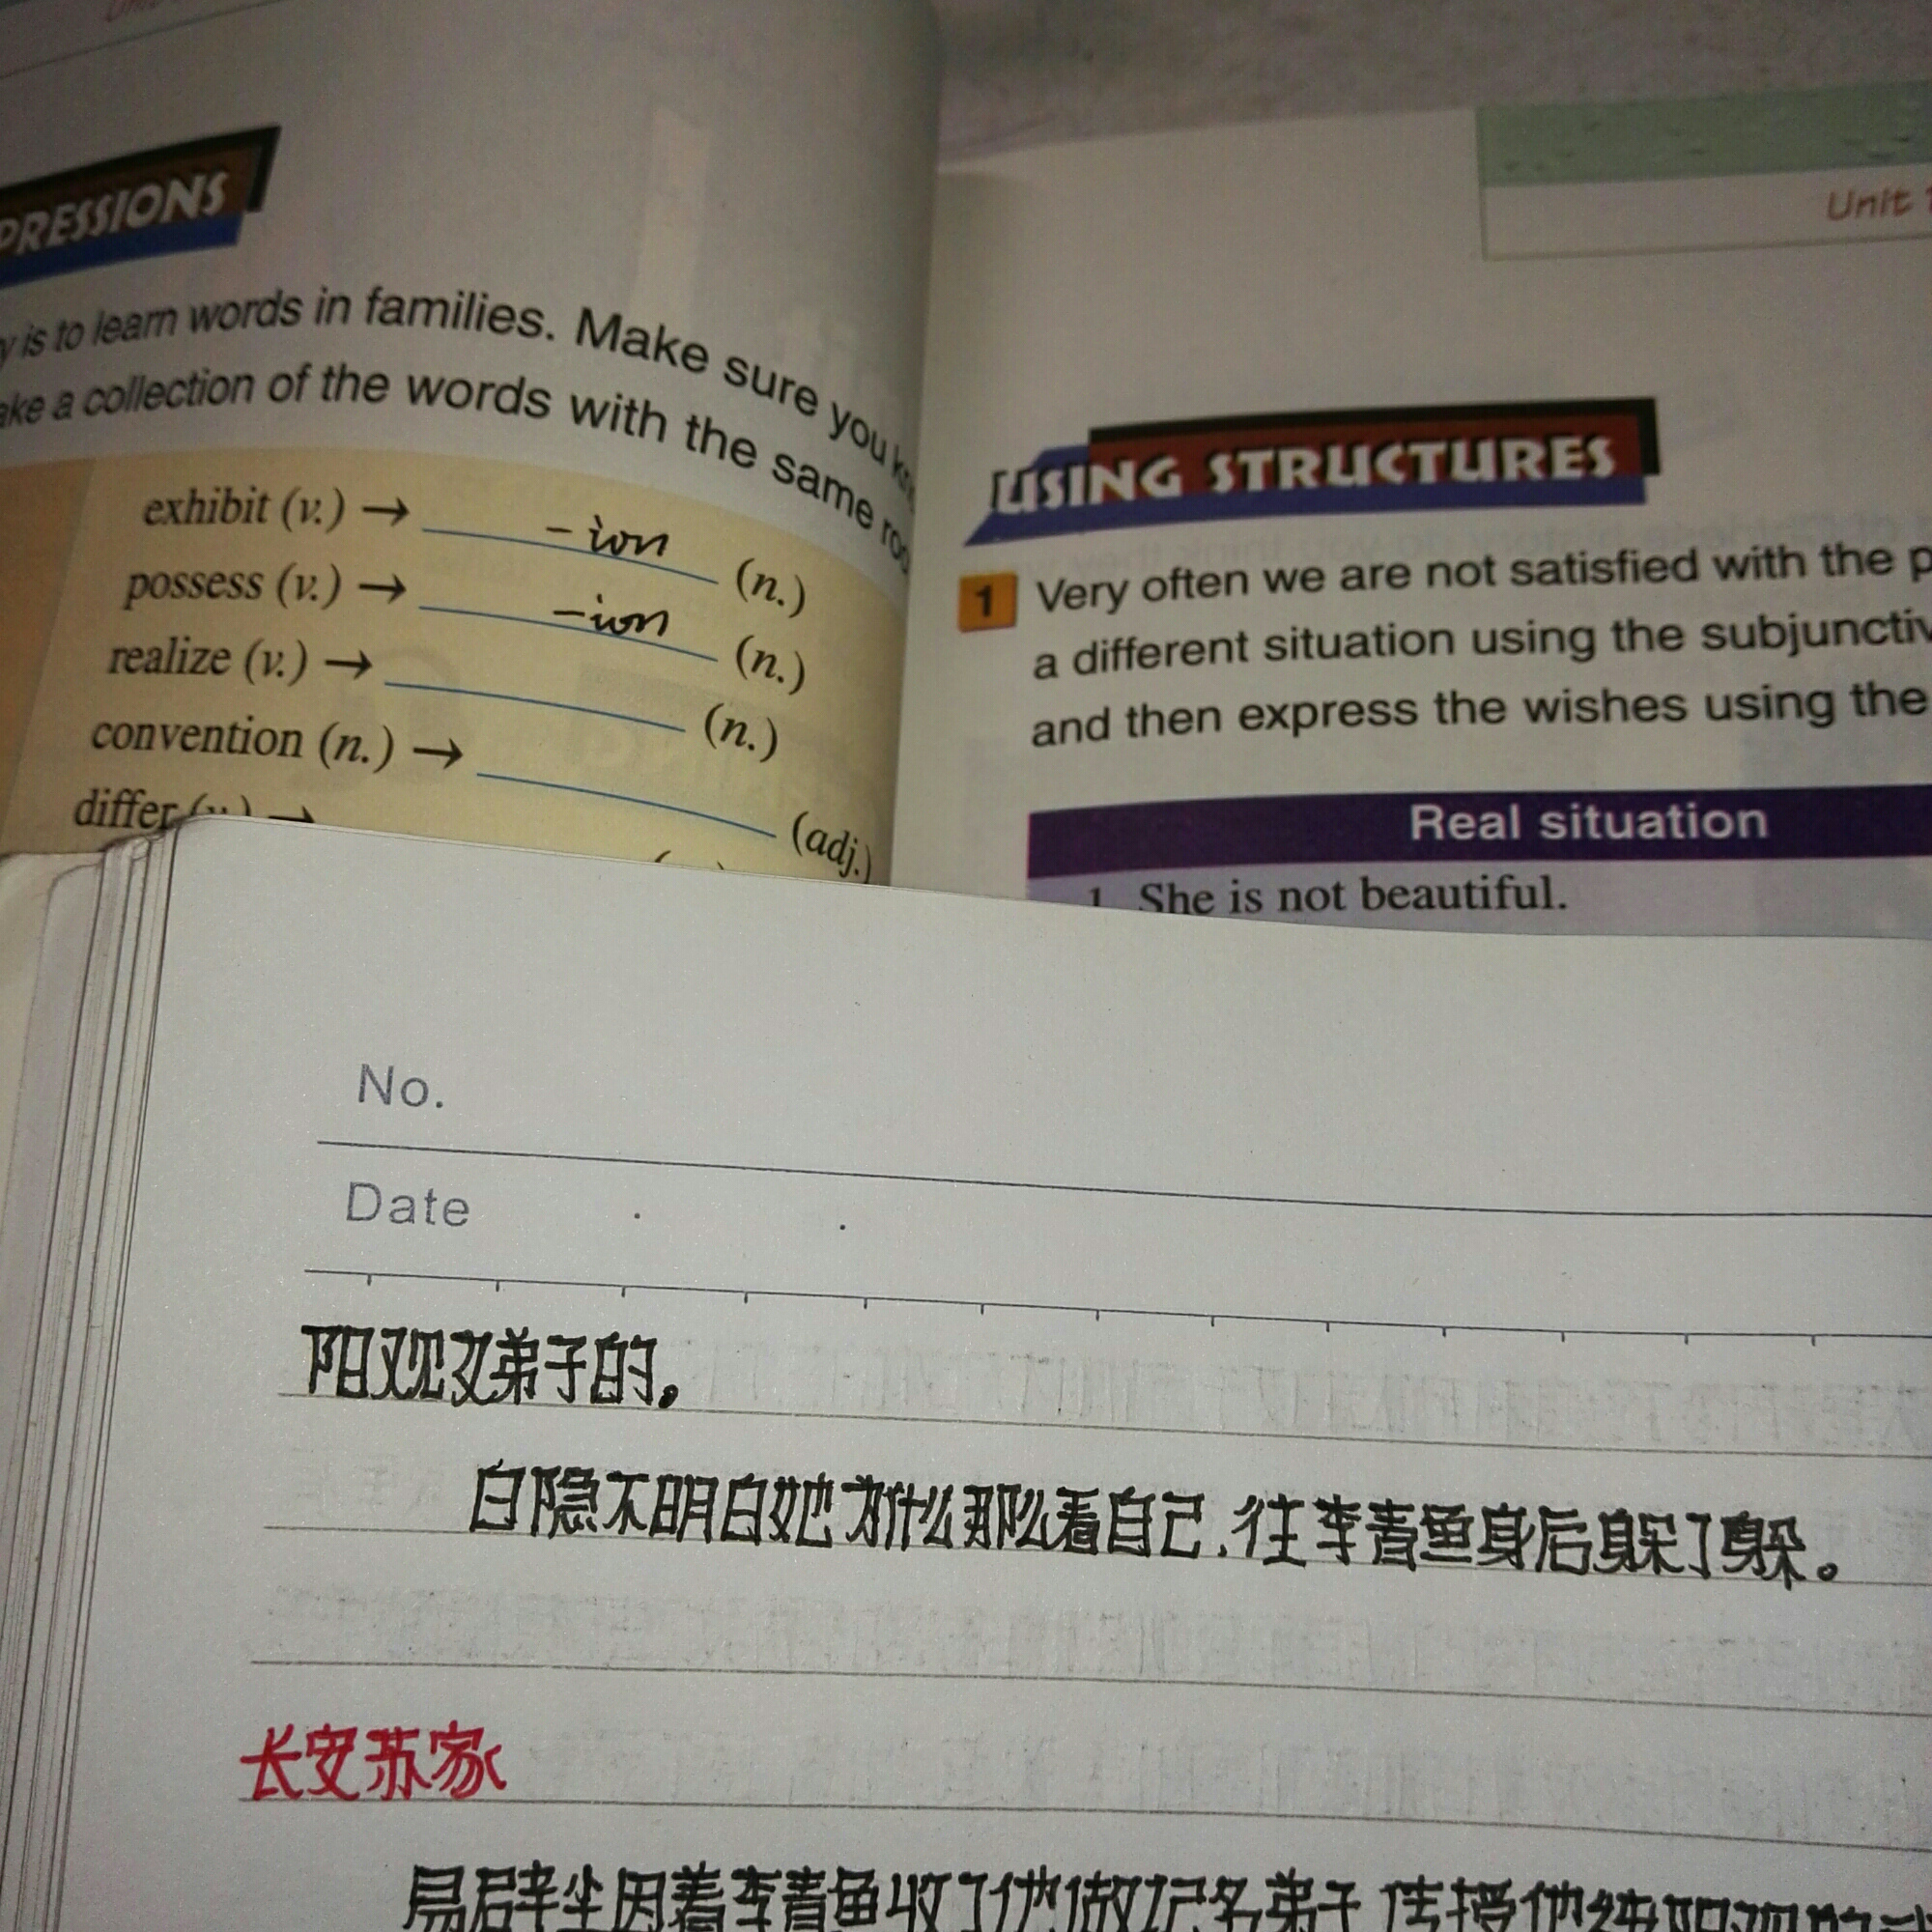 PRESSIONS
y is to learn words in families. Make sure you
ake a collection of the words with the same
exhibit (v.) → -ion (n.)
possess (v.) → -ion (n.)
realize (v.) → (n.)
convention (n.) → (adj.)
differ
Unit
USING STRUCTURES
1 Very often we are not satisfied with the p
a different situation using the subjunctiv
and then express the wishes using the
Real situation
1. She is not beautiful.
No.
Date
阳观女弟子的。
白隐不明白她为什么那么看自己,往李青鱼身后躲了躲。
长安苏家
因着李青鱼收了他做记名弟子 传授他纯阳观的